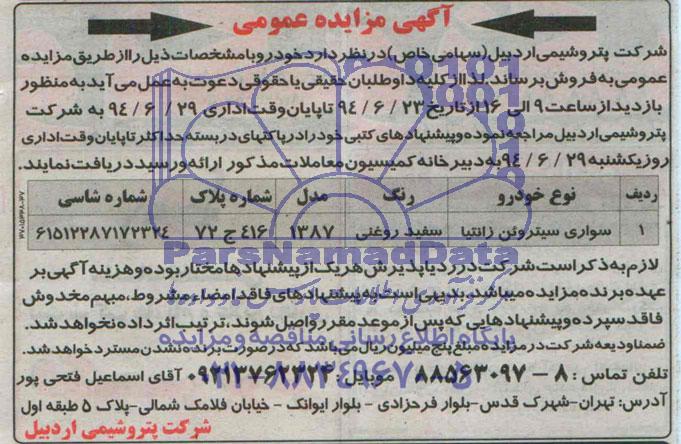 آگهی مزایده عمومی
شرکت پتروشیمی اردبیل (سهامی خاص) در نظر دارد خودرو با مشخصات ذیل را از طریق مزایده
عمومی به فروش برساند. لذا از کلیه داوطلبان حقیقی یا حقوقی دعوت به عمل می آید به منظور
بازدید از ساعت ۹ الی ۱۶ از تاریخ ۲۳ / ۶ / ۹۴ تا پایان وقت اداری ۲۹ / ۶ / ۹۴ به شرکت
پتروشیمی اردبیل مراجعه نموده و پیشنهادهای کتبی خود را در پاکتهای در بسته حداکثر تا پایان وقت اداری
روز یکشنبه ۲۹ / ۶ / ۹۴ به دبیرخانه کمیسیون معاملات مذکور ارائه و رسید دریافت نمایند.
ردیف نوع خودرو رنگ مدل شماره پلاک شماره شاسی
۱ سواری سیتروئن زانتیا سفید روغنی ۱۳۸۷ ۴۱۶ ج ۷۲ ۶۱۵۱۲۲۸۷۱۷۲۳۲۴
لازم به ذکر است شرکت در رد یا پذیرش هر یک از پیشنهادها مختار بوده و هزینه آگهی بر
عهده برنده مزایده میباشد. بدیهی است به پیشنهادهای فاقد امضاء، مشروط، مبهم مخدوش
فاقد سپرده و پیشنهادهایی که پس از موعد مقرر واصل شوند، ترتیب اثر داده نخواهد شد.
ضمنا ودیعه شرکت در مزایده مبلغ پنج میلیون ریال می باشد که در صورت برنده نشدن مسترد خواهد شد.
تلفن تماس : ۸ - ۸۸۵۶۳۰۹۷ موبایل : ۰۹۲۱۳۷۶۲۳۲۲ آقای اسماعیل فتحی پور
آدرس: تهران-شهرک قدس-بلوار فرحزادی - بلوار ایوانک - خیابان فلامک شمالی-پلاک ۵ طبقه اول
شرکت پتروشیمی اردبیل
ParsNamadData
پایگاه اطلاع رسانی مناقصه و مزایده